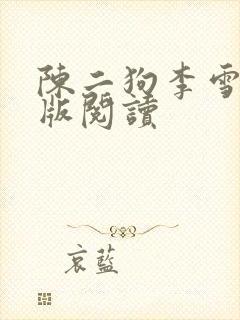 陳二狗李雪
版閱讀
哀藍